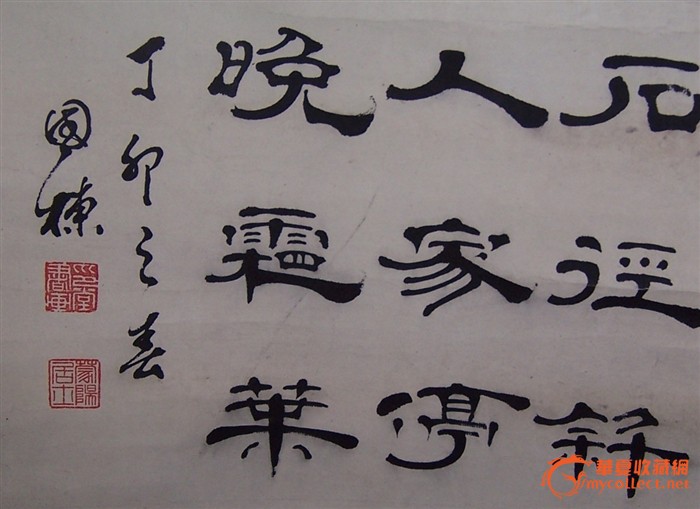 石徑斜
人家亭
晚霜葉
丁卯之春
國棟
華夏收藏網
mycollect.net